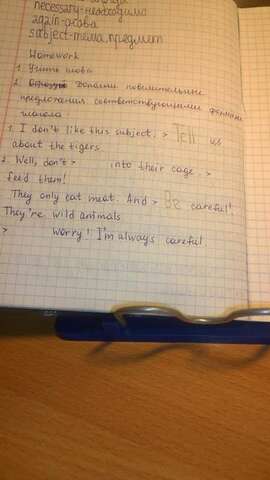 necessary-необходимо
again-снова
subject-тема, предмет
Homework
1. Учить слова
2. Дополни повелительные
предложения соответствующими формами
глагола
1. I don't like this subject. > Tell us
about the tigers
2. Well, don't > into their cage. >
feed them!
They only eat meat. And > Be careful!
They're wild animals
> worry! I'm always careful